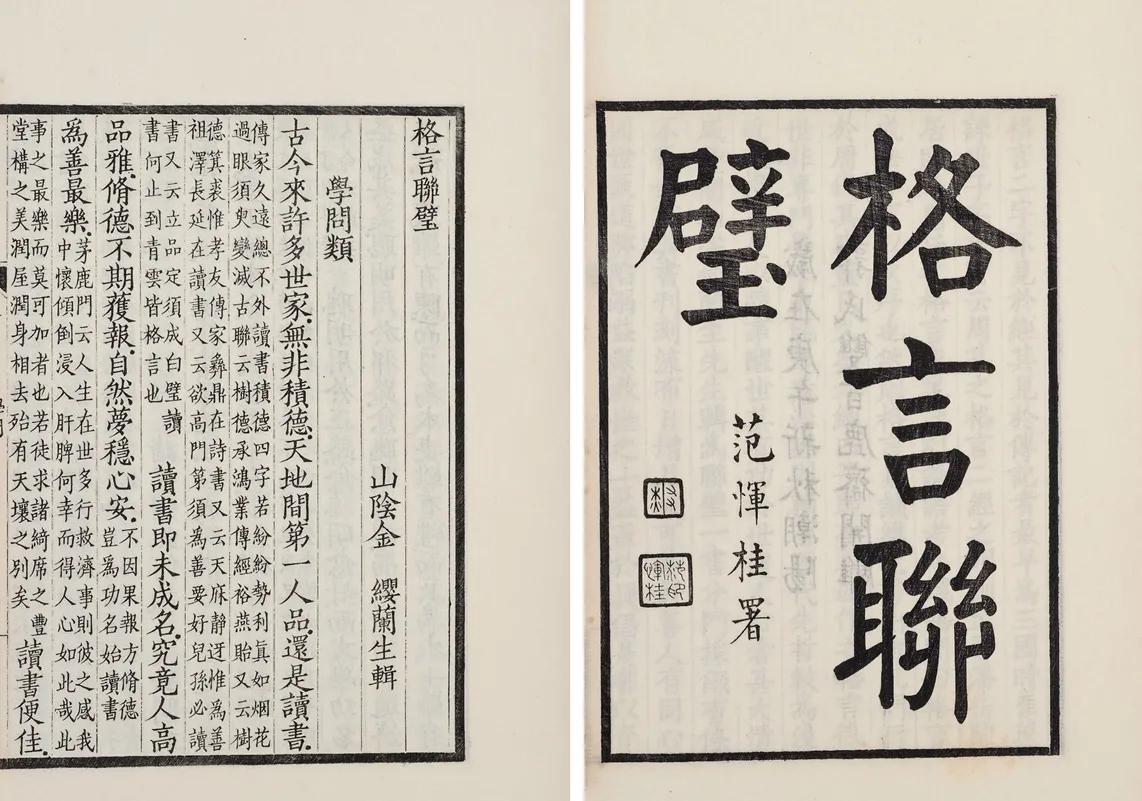 格言聯
璧
范惲桂署
范印惲桂
格言聯璧
山陰金 纓蘭生輯
學問類
古今來許多世家.無非積德.天地間第一人品.還是讀書.
傳家久遠總不外讀書積德四字若紛紛勢利眞如烟花
過眼須臾變滅古聯云樹德承鴻業傳經裕燕貽又云樹
德箕裘惟孝友傳家彝鼎在詩書又云天庥靜迓惟爲善
祖澤長延在讀書又云欲高門第須爲善要好兒孫必讀
書又云立品定須成白璧讀
書何止到青雲皆格言也
讀書即未成名.究竟人高
品雅.脩德不期獲報.自然夢穩心安.
不因果報方脩德
豈爲功名始讀書
爲善最樂.
茅鹿門云人生在世多行救濟事則彼之感我
中懷傾倒浸入肝脾何幸而得人心如此哉此
事之最樂而莫可加者也若徒求諸綺席之豐
堂構之美潤屋潤身相去殆有天壤之別矣
讀書便佳.